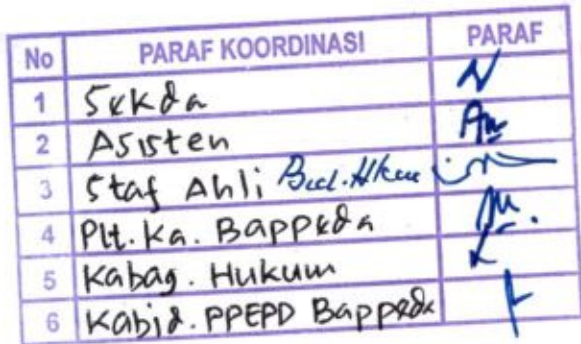 No PARAF KOORDINASI PARAF
1 Sekda
2 Asisten
3 Staf Ahli Bid. Hkum
4 Plt. Ka. Bappeda
5 Kabag. Hukum
6 Kabid. PPEPD Bappeda